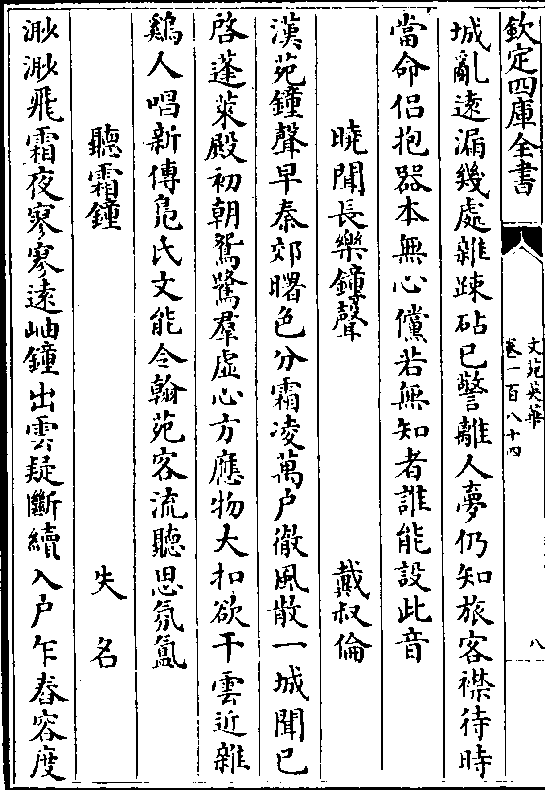 欽定四庫全書
文苑英華
卷一百八十四
八
城亂遠漏幾處雜踈砧已警離人夢仍知旅客襟待時
當命侣抱器本無心儻若無知者誰能設此音
曉聞長樂鐘聲
戴叔倫
漢苑鐘聲早秦郊曙色分霜凌萬户徹風散一城聞已
啓蓬萊殿初朝鴛鷺羣虚心方應物大扣欲干雲近雜
鷄人唱新傳鳬氏文能令翰苑客流聽思氛氲
聽霜鐘
失名
渺渺飛霜夜寥寥遠岫鐘出雲疑斷續入户乍舂容度